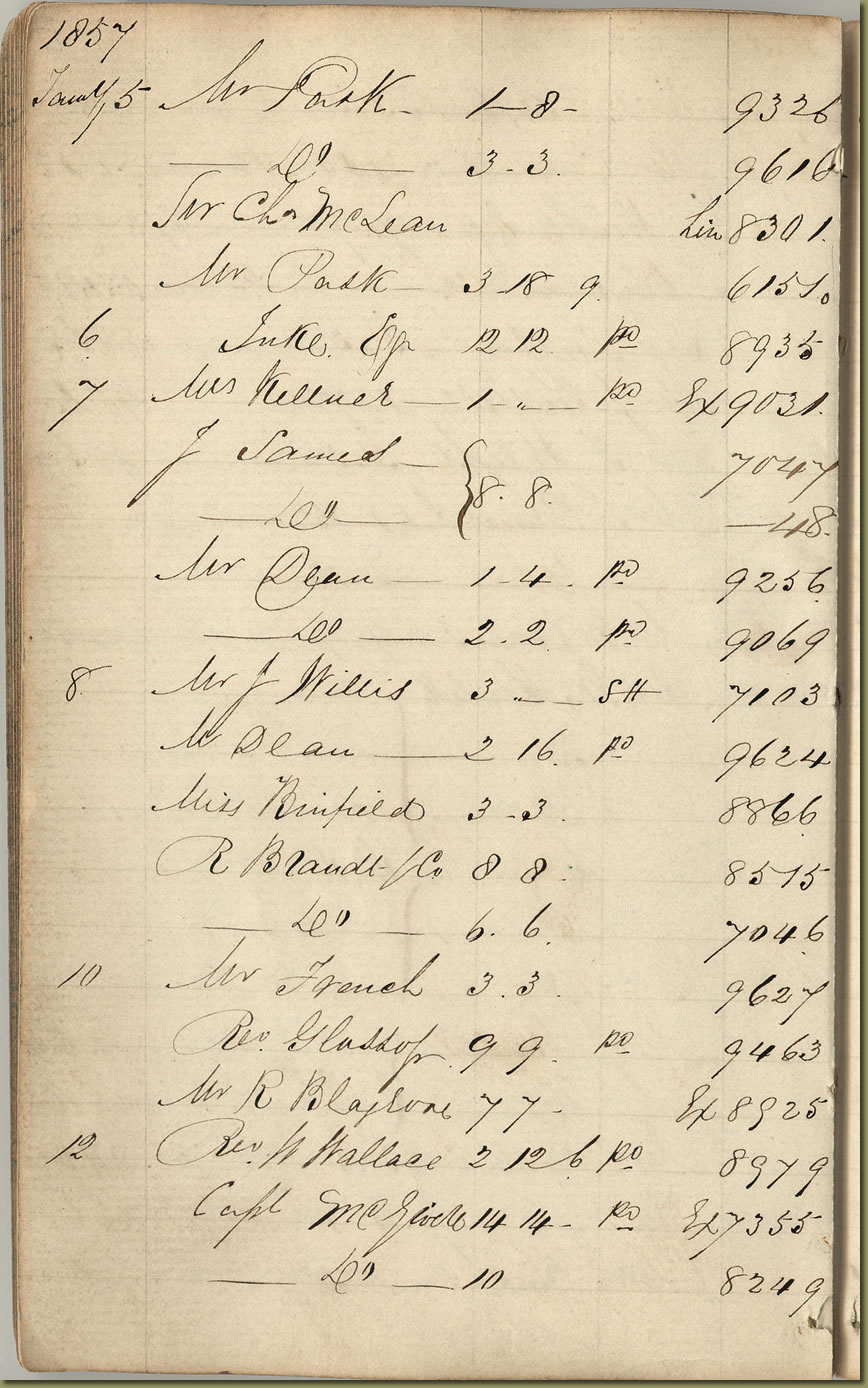 1857
Jany 5 Mr Pask 1 - 8 - 9326
— Do — 3 - 3. 9616
Sir Chas McLean Lin 8301.
Mr Pask 3 18 9. 6151.
6 Esq 12 12. po 8935
7 Mrs Kellner — 1 - „ — po Ex 9031.
J James — 7047
— Do — {8. 8. — 48.
Mr Dean — 1 - 4. po 9256
— Do — 2. 2. po 9069
8 Mr J Willis 3 „ — SH 7103
M Dean — 2 16. po 9624
Miss Binfield 3 - 3. 8866
R Brandt & Co 8 8. 8515
— Do — 6. 6. 7046
10 Mr French 3. 3. 9627
Rev. Glossop 9 9. po 9463
Mr R 7 7 - Ex 8925
12 Rev. W Wallace 2 12 6 po 8979
Capt 14 14 - po Ex 7355
— Do — 10 8249